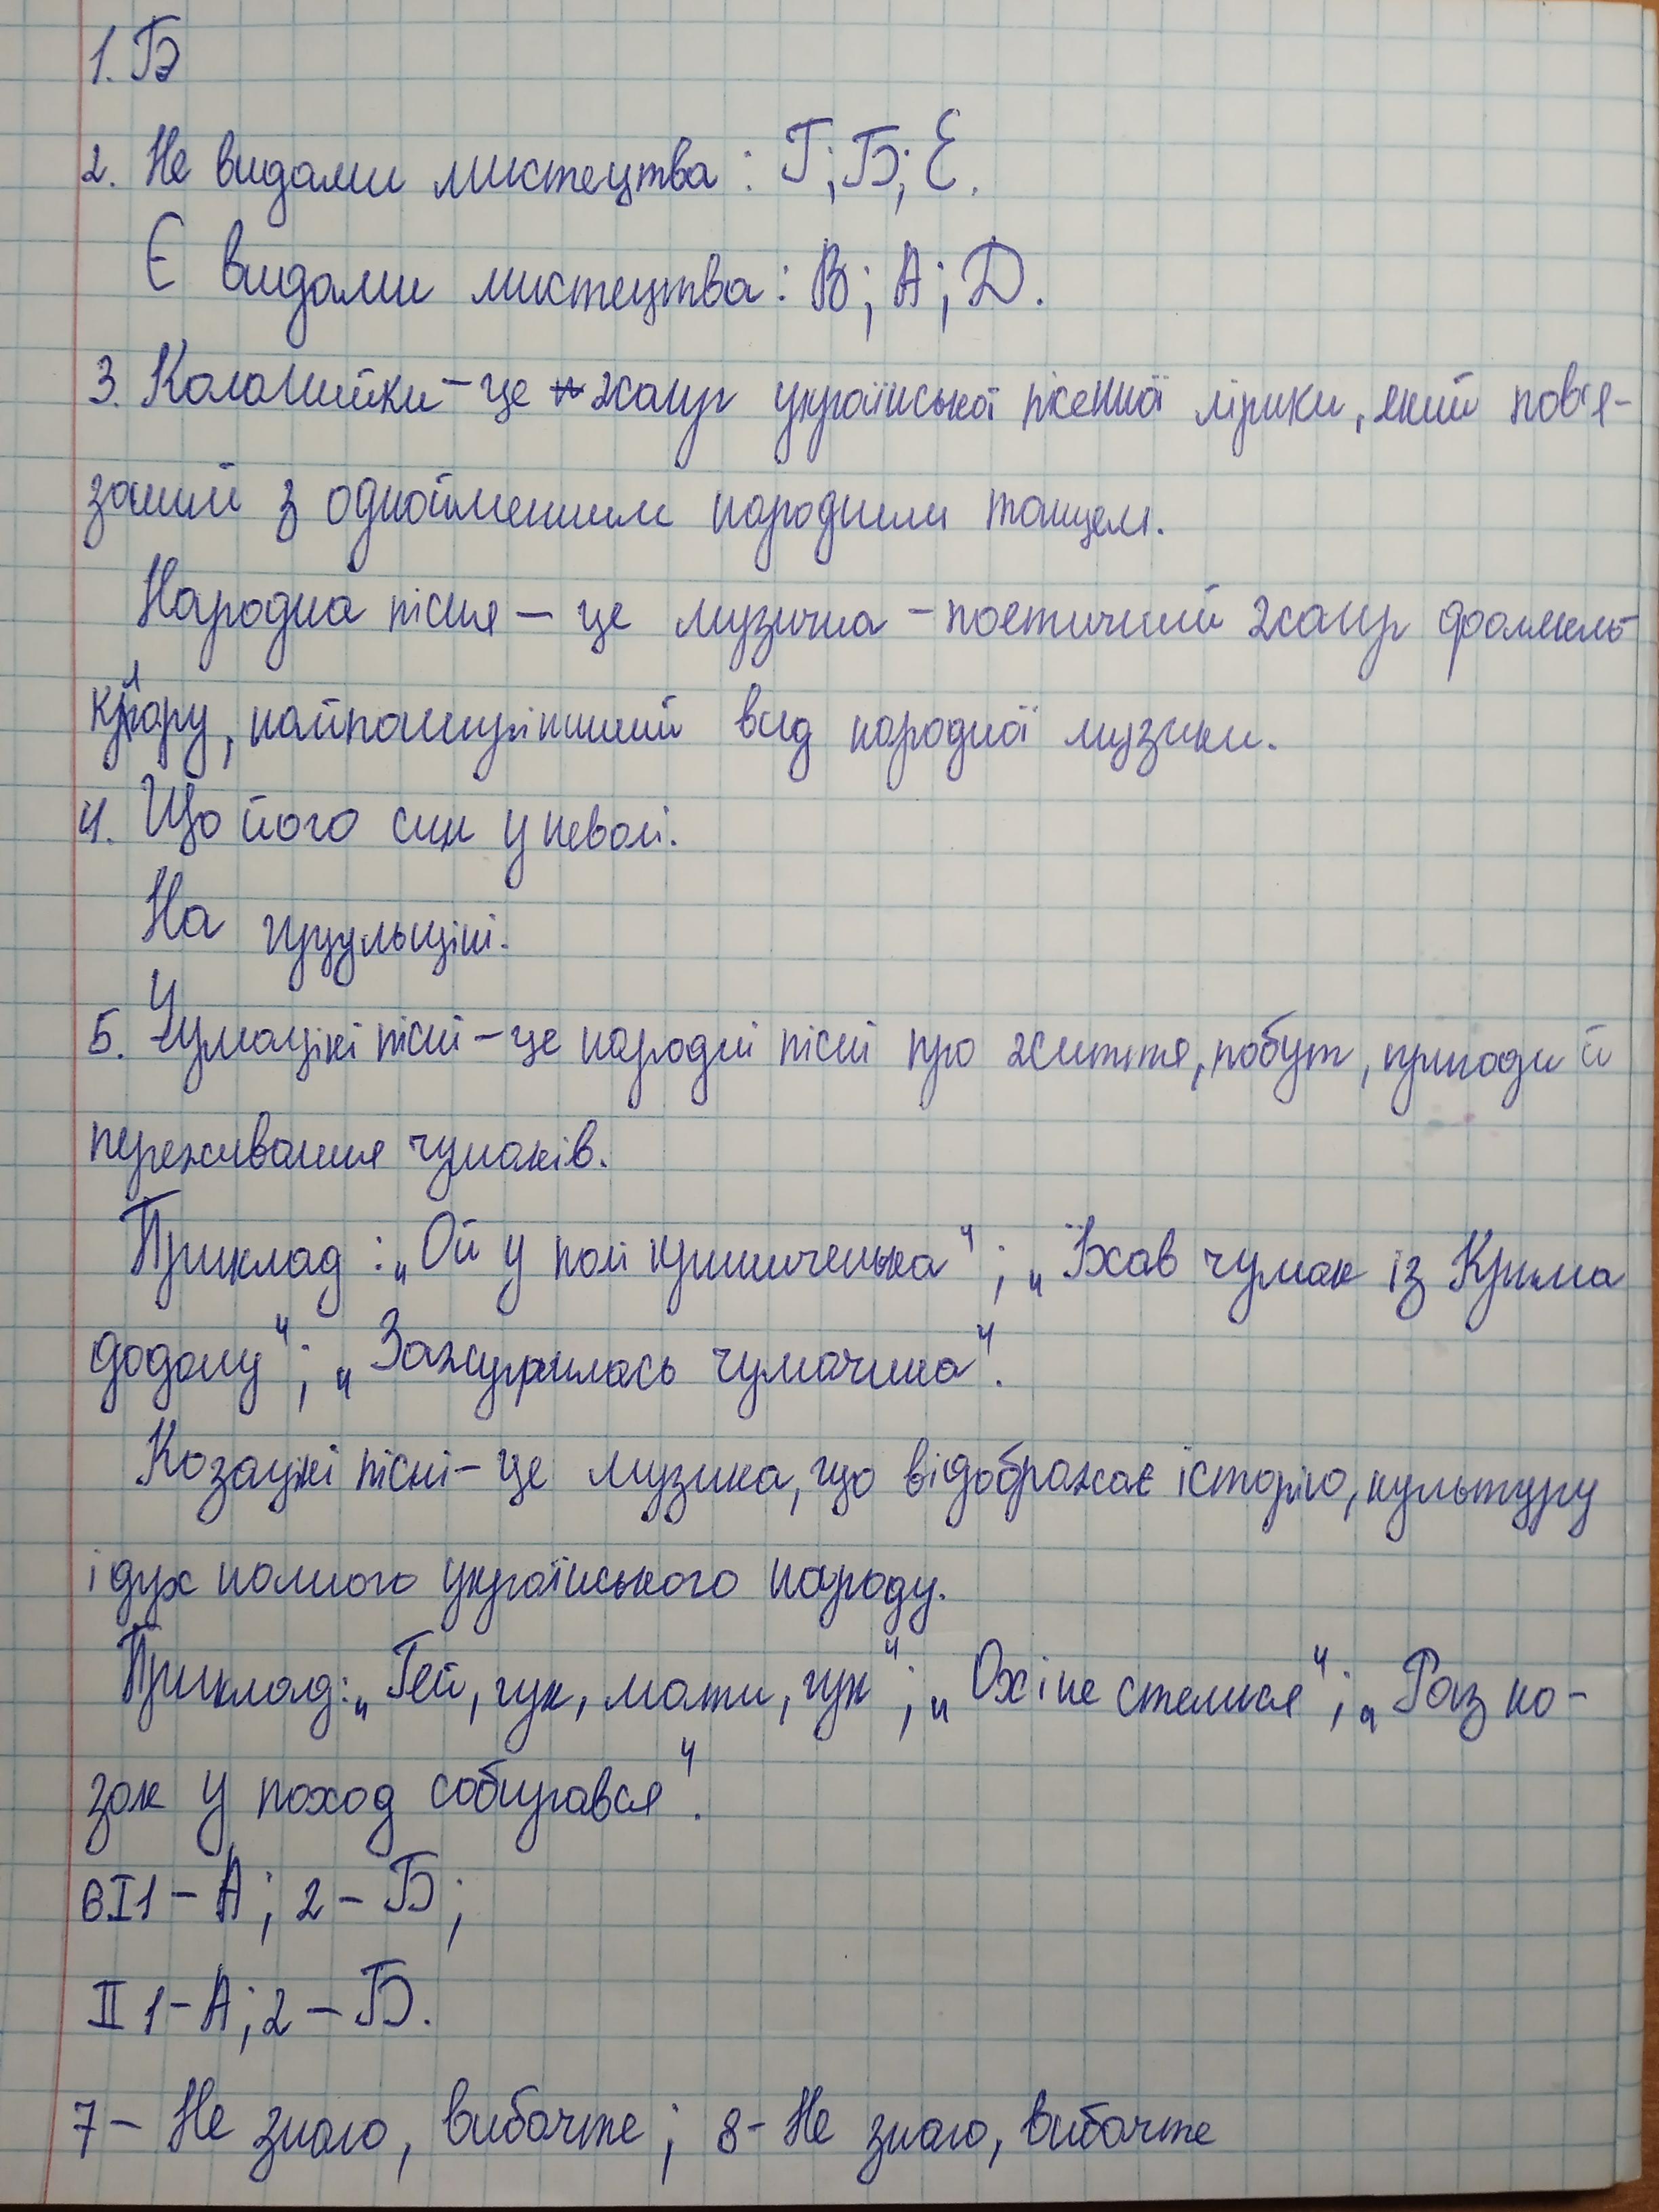 1. Б
2. Не видами мистецтва: Г; Б; Е.
Є видами мистецтва: В; А; Д.
3. Коломийки – це жанр української пісенної лірики, який пов'я-
заний з однойменним народним танцем.
Народна пісня – це музична – поетичний жанр фолькль-
клору, найпоширініший вид народної музики.
4. Що його син у неволі.
На гуцульщіні.
5. Чумацікі пісні – це народні пісні про життя, побут, пригоди й
переживання чумаків.
Приклад: „Ой у полі криниченька"; „Їхав чумак із Крима
додому"; „Зажурилась чумачина".
Козацькі пісні – це музика, що відображає історію, культуру
і дух нашого українського народу.
Приклад: „Гей, гук, мати, гук"; „Ох і не стелися"; „Раз ко-
зак у поход собирався".
6 I 1 – А; 2 – Б;
II 1 – А; 2 – Б.
7 – Не знаю, вибачте; 8 – Не знаю, вибачте